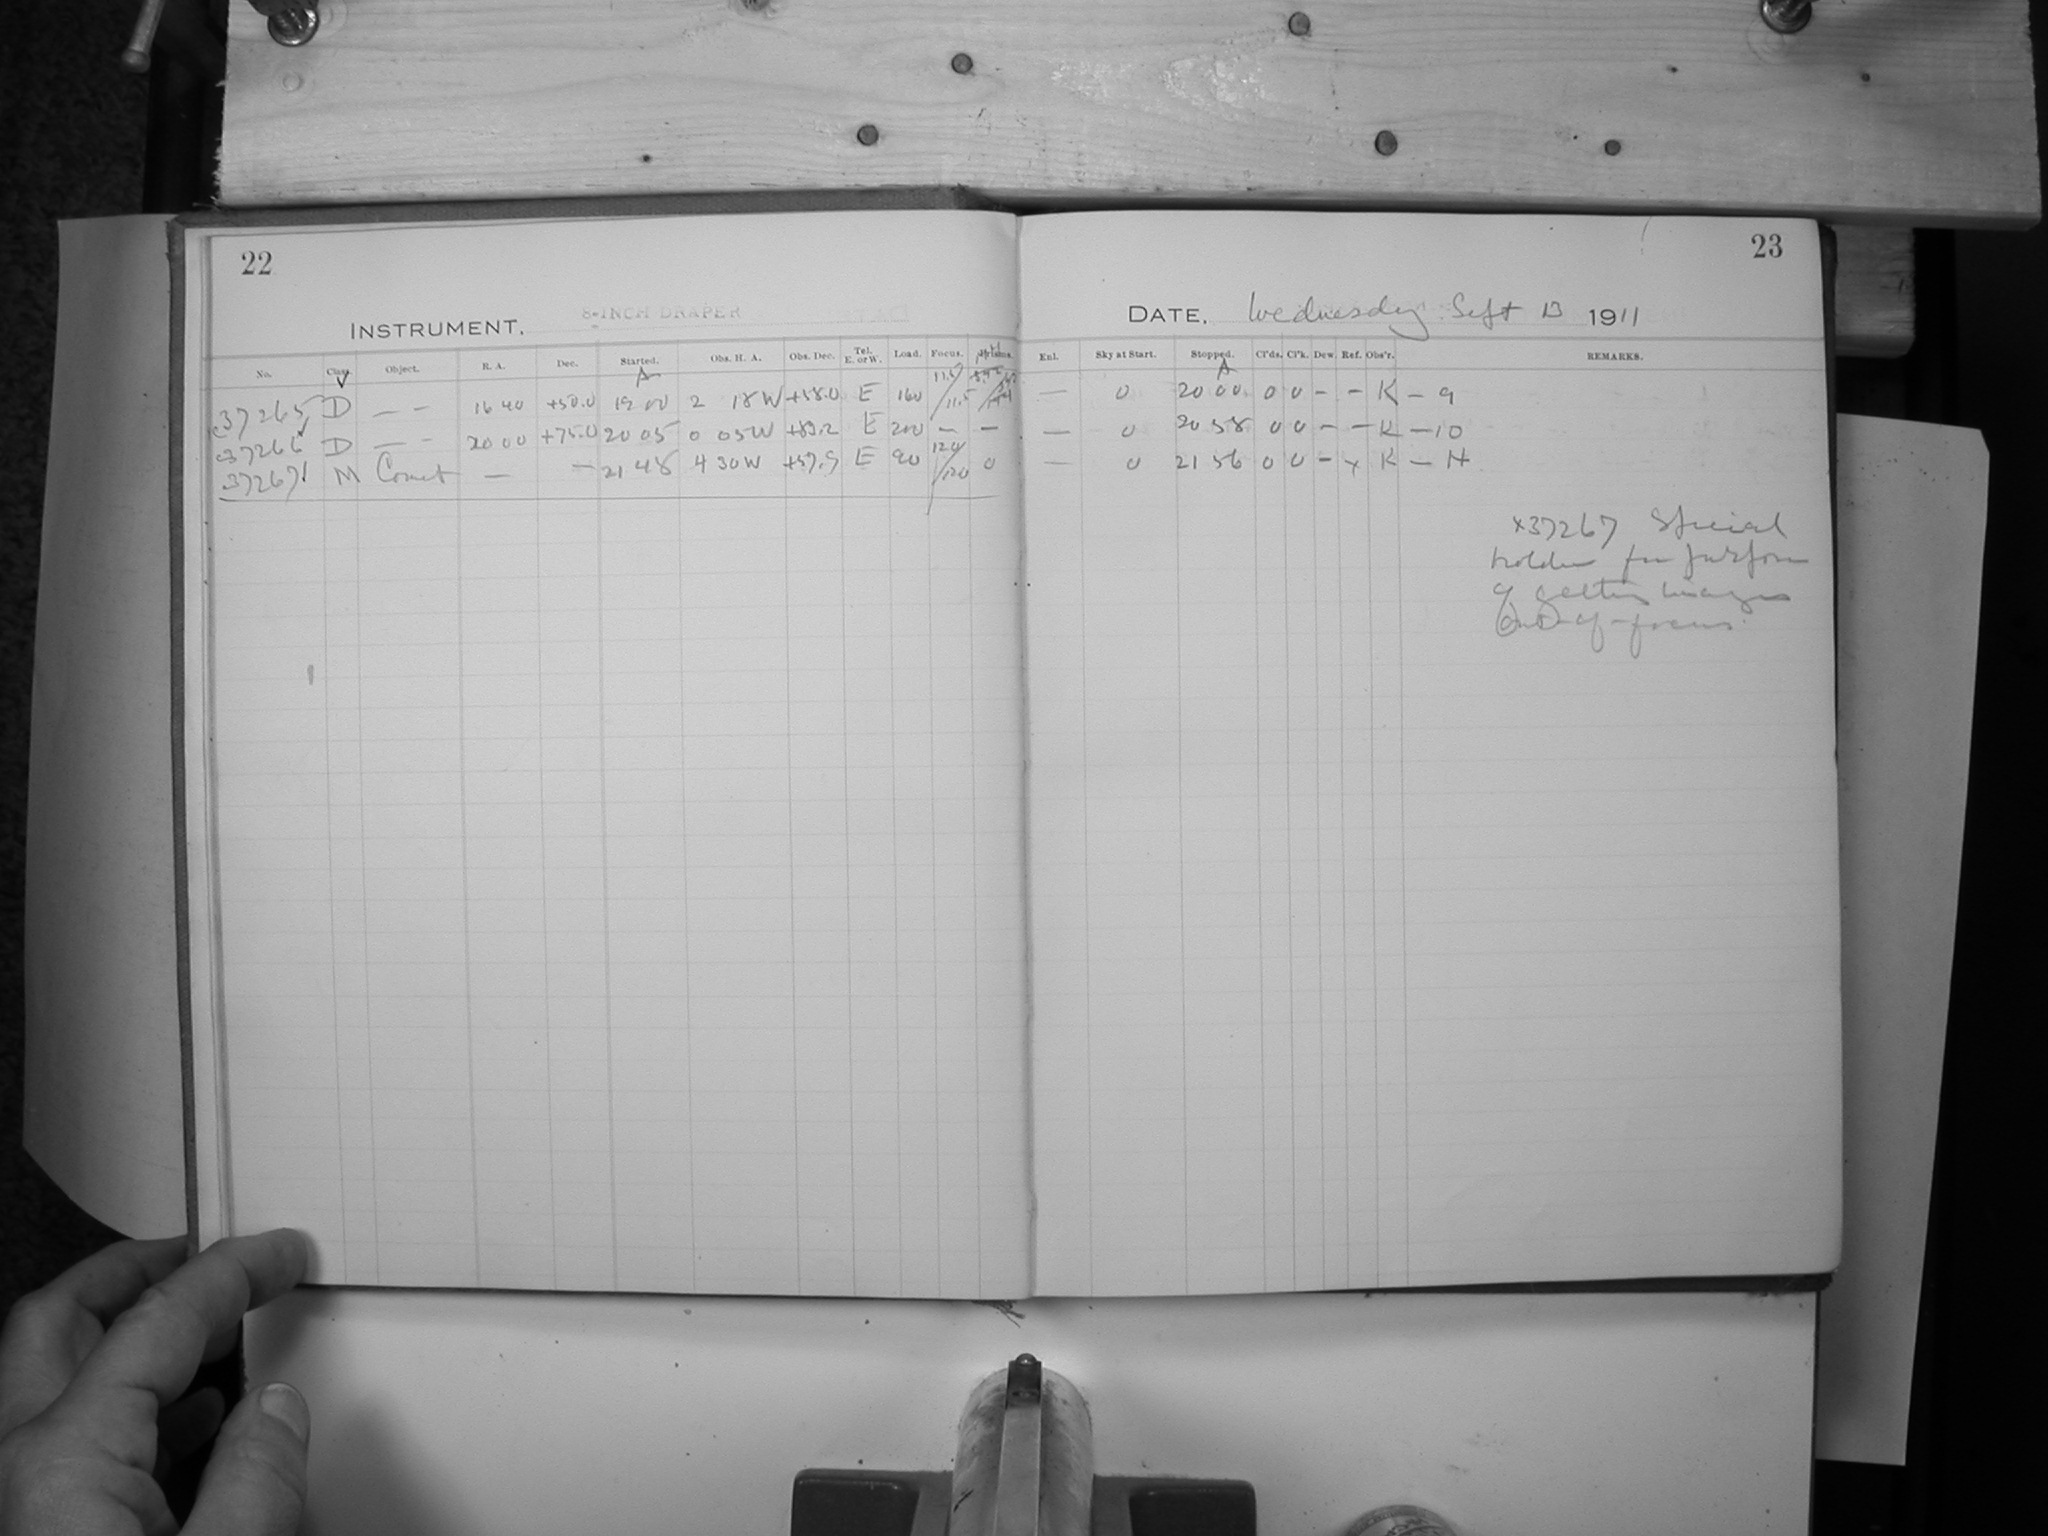 22
23
8-INCH DRAPER
INSTRUMENT.
DATE, Wednesday Sept 13 1911
No. Class. Object. R. A. Dec. Started. Obs. H. A. Obs. Dec. Tel. E. or W. Load. Focus. Enl. Sky at Start. Stopped. Cl'ds. Cl'k. Dew. Ref. Obs'r. REMARKS.
A A
37265 D — - 16 40 +50.0 19 00 2 18 W +58.0 E 160 11.5 — 0 20 00 0 0 - - K - 9
37266 D — - 20 00 +75.0 20 05 0 05 W +83.2 E 200 — — — 0 20 58 0 0 - - K - 10
37267 M Comet — — 21 48 4 30 W +57.9 E 90 12.0/12.0 0 — 0 21 56 0 0 - x K - H
x37267 Special
holder for purpose
of getting images
out-of-focus.